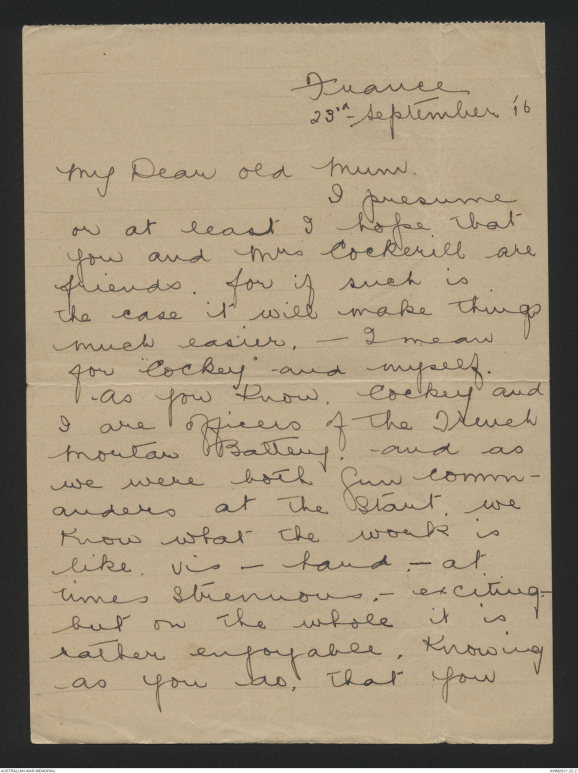 France
23rd- September '16
My Dear old Mum.
I presume
or at least I hope that
you and Mrs Cockerill are
friends. for if such is
the case it will make things
much easier. - I mean
for "Cockey" and myself.
As you know, Cockey and
I are officers of the Trench
Mortar Battery, and as
we were both Gun Comm-
anders at the start, we
know what the work is
like. vis - hard, - at
times strenuous, - exciting -
but on the whole it is
rather enjoyable. Knowing
as you do, that you
AUSTRALIAN WAR MEMORIAL
AWM2021.22.7